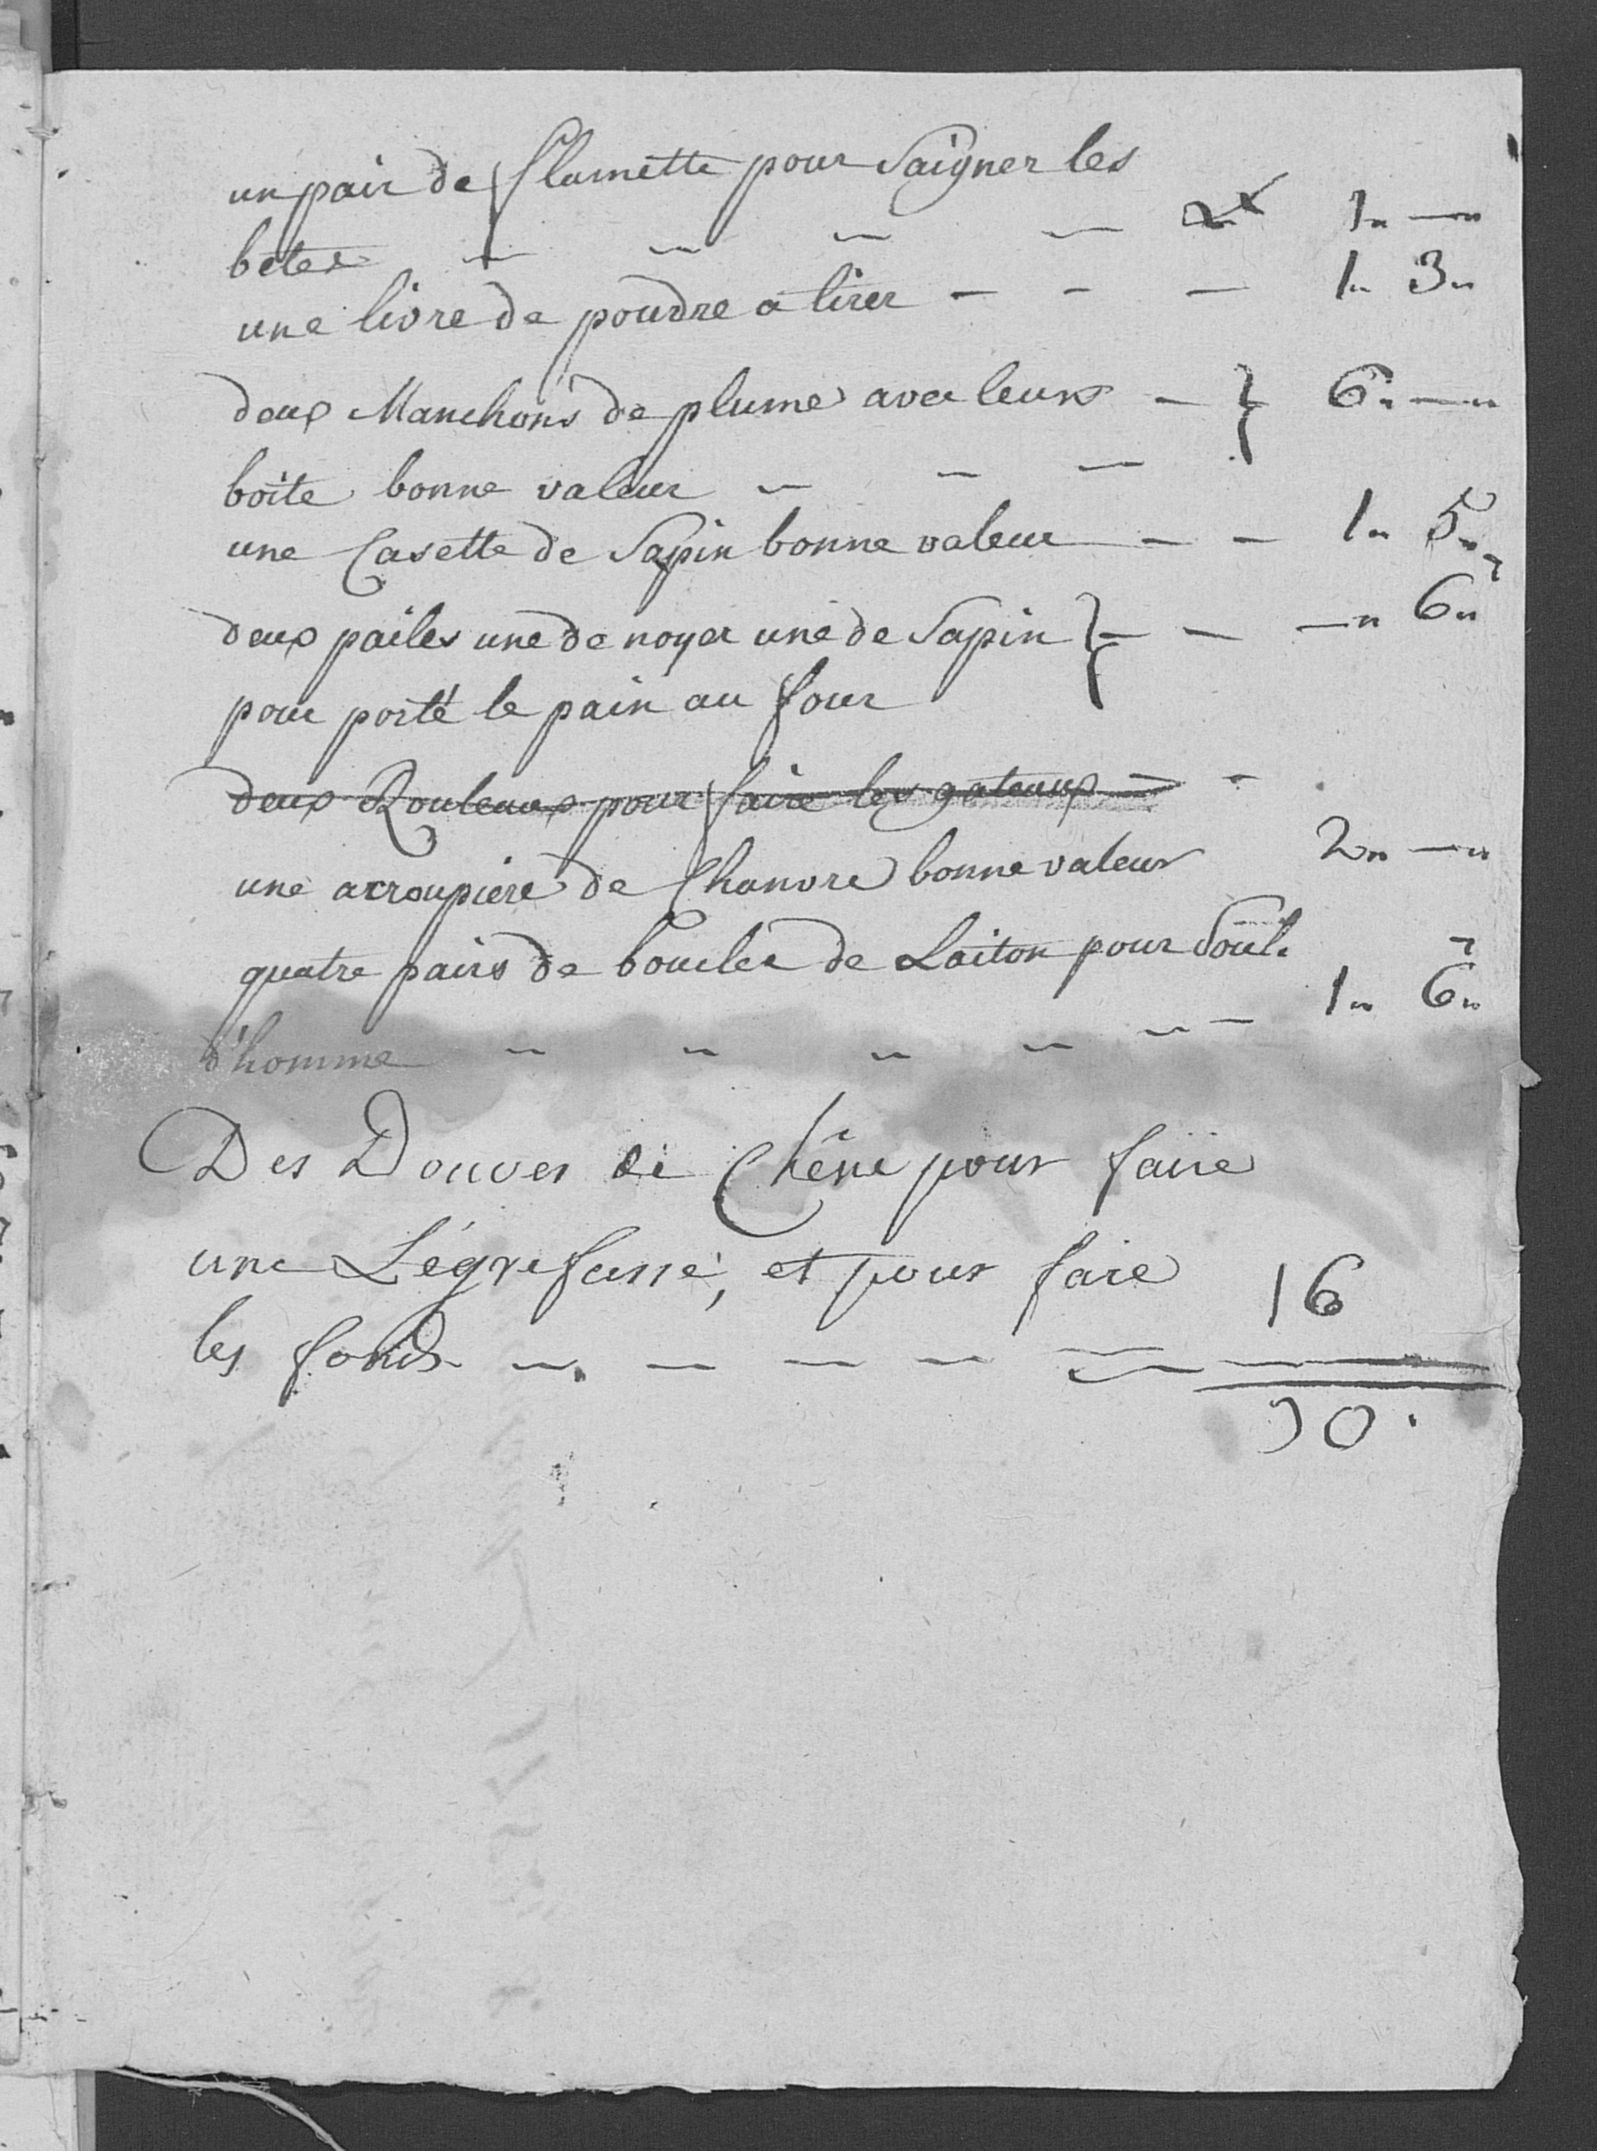 un pair de flumette pour Saigner les
betes - - - - 1 " — "
une livre de poudre a tirer - - - 1 " 3 "
deux Manchons de plume avec leurs - } 6 " — "
boite bonne valeur - - -
une Casette de Sapin bonne valeur - - 1 " 5 "
deux pailes une de noyer une de Sapin } - - — " 6 "
pour porté le pain au four
deux Rouleaux pour faire les gateaux -
une acroupiere de Chanvre bonne valeur 2 " — "
quatre pairs de boucles de Laiton pour Soul.
d'homme - - - - - - 1 " 6 "
Des Douves de Chêne pour faire
une Légrefasse, et pour faire
les fonds - - - - - 16
30.